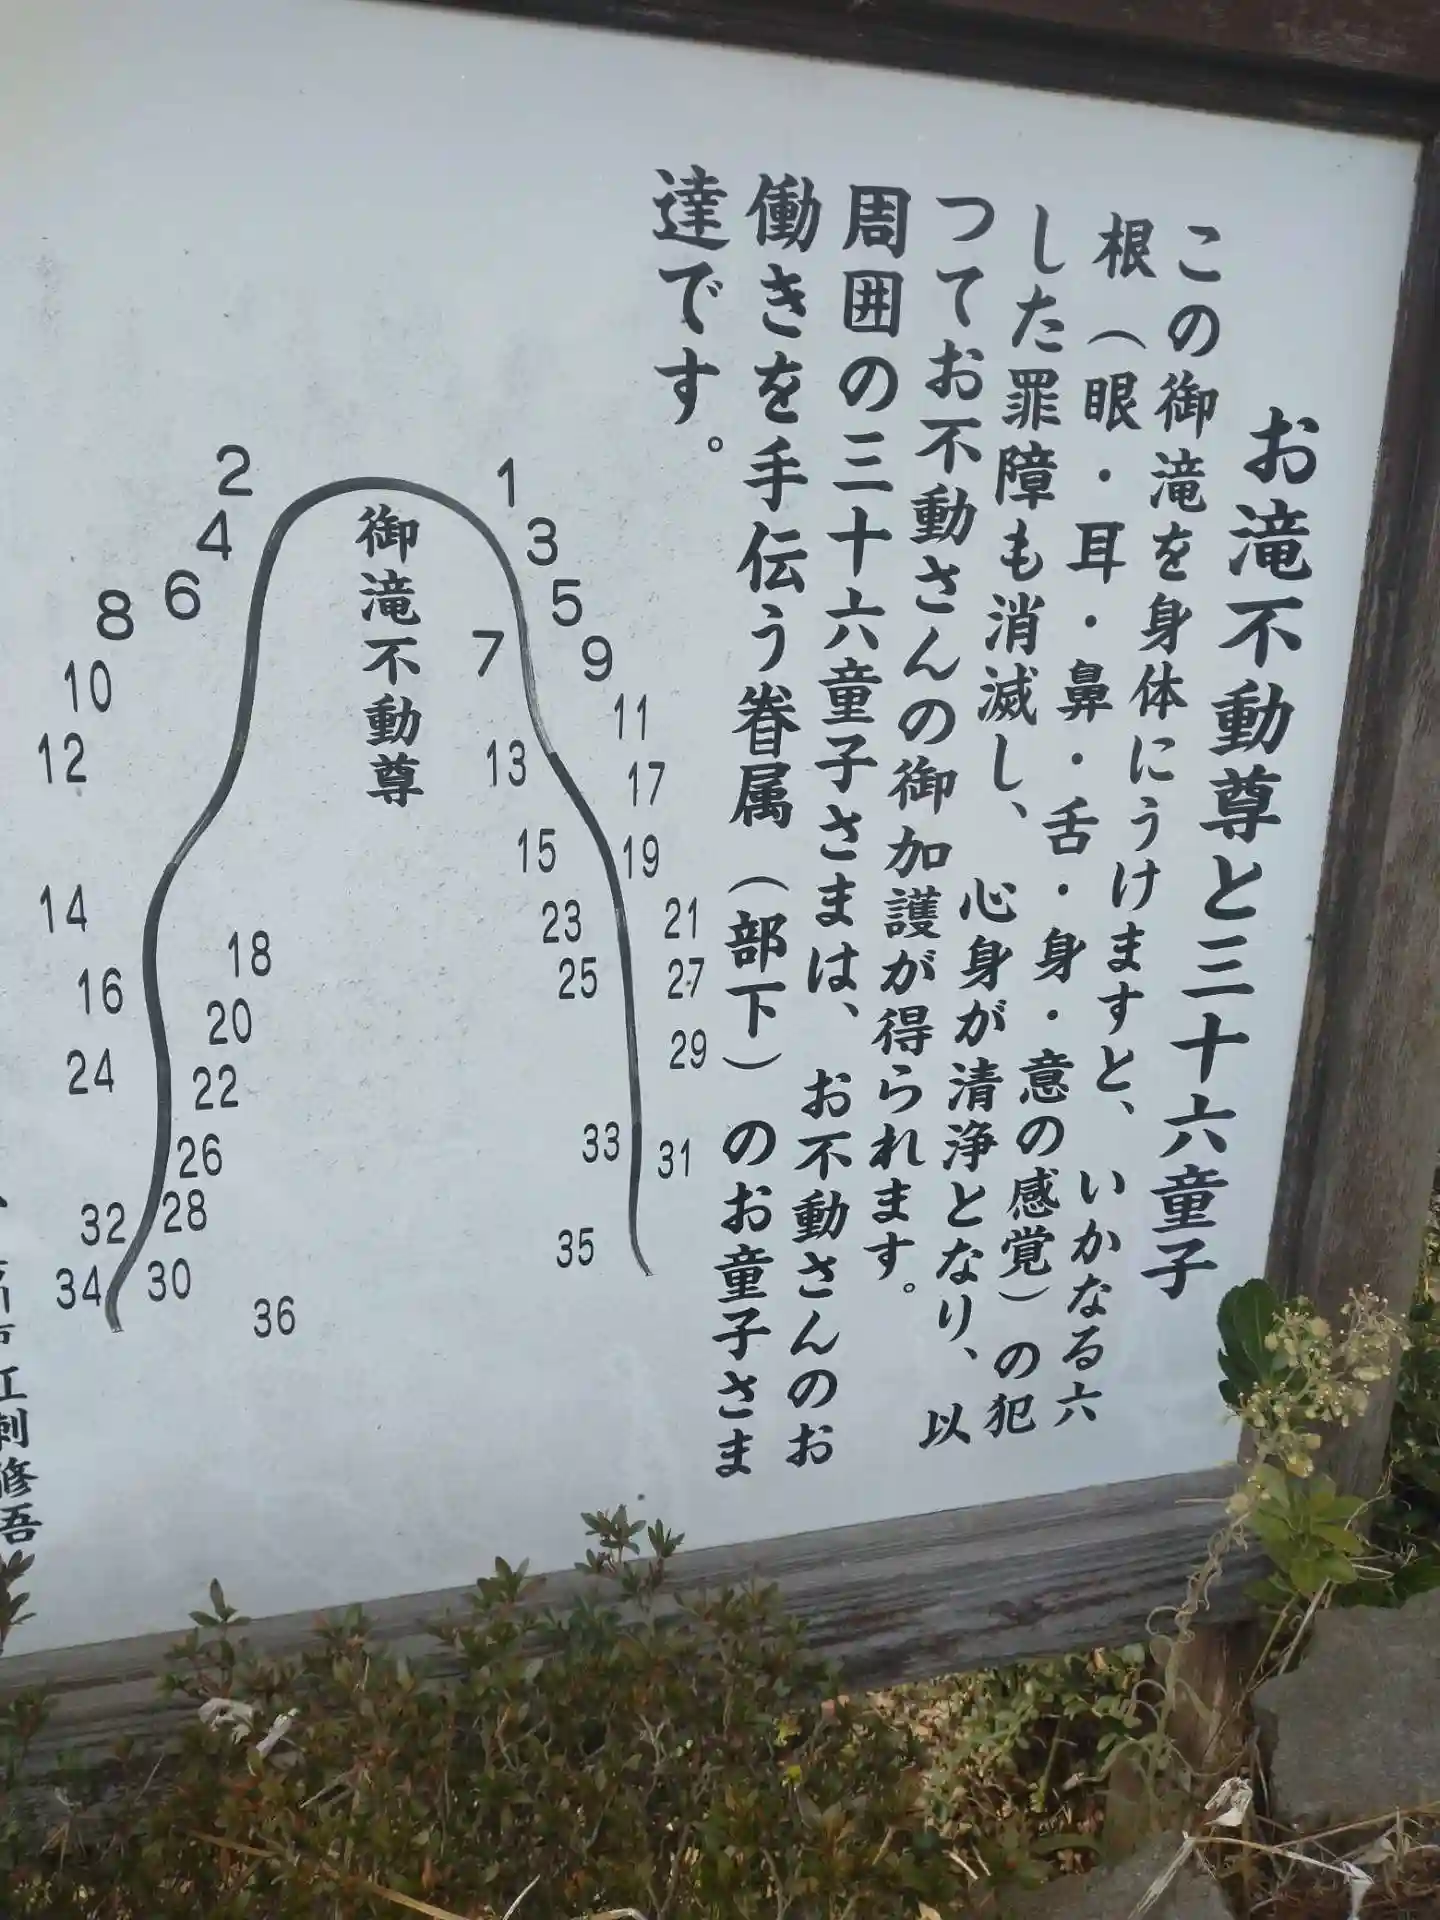 お滝不動尊と三十六童子
この御滝を身体にうけますと、いかなる六
根（眼・耳・鼻・舌・身・意の感覚）の犯
した罪障も消滅し、心身が清浄となり、以
つてお不動さんの御加護が得られます。
周囲の三十六童子さまは、お不動さんのお
働きを手伝う眷属（部下）のお童子さま
達です。
御滝不動尊
1
2
3
4
5
6
7
8
9
10
11
12
13
14
15
16
17
18
19
20
21
22
23
24
25
26
27
28
29
30
31
32
33
34
35
36
江刺修吾